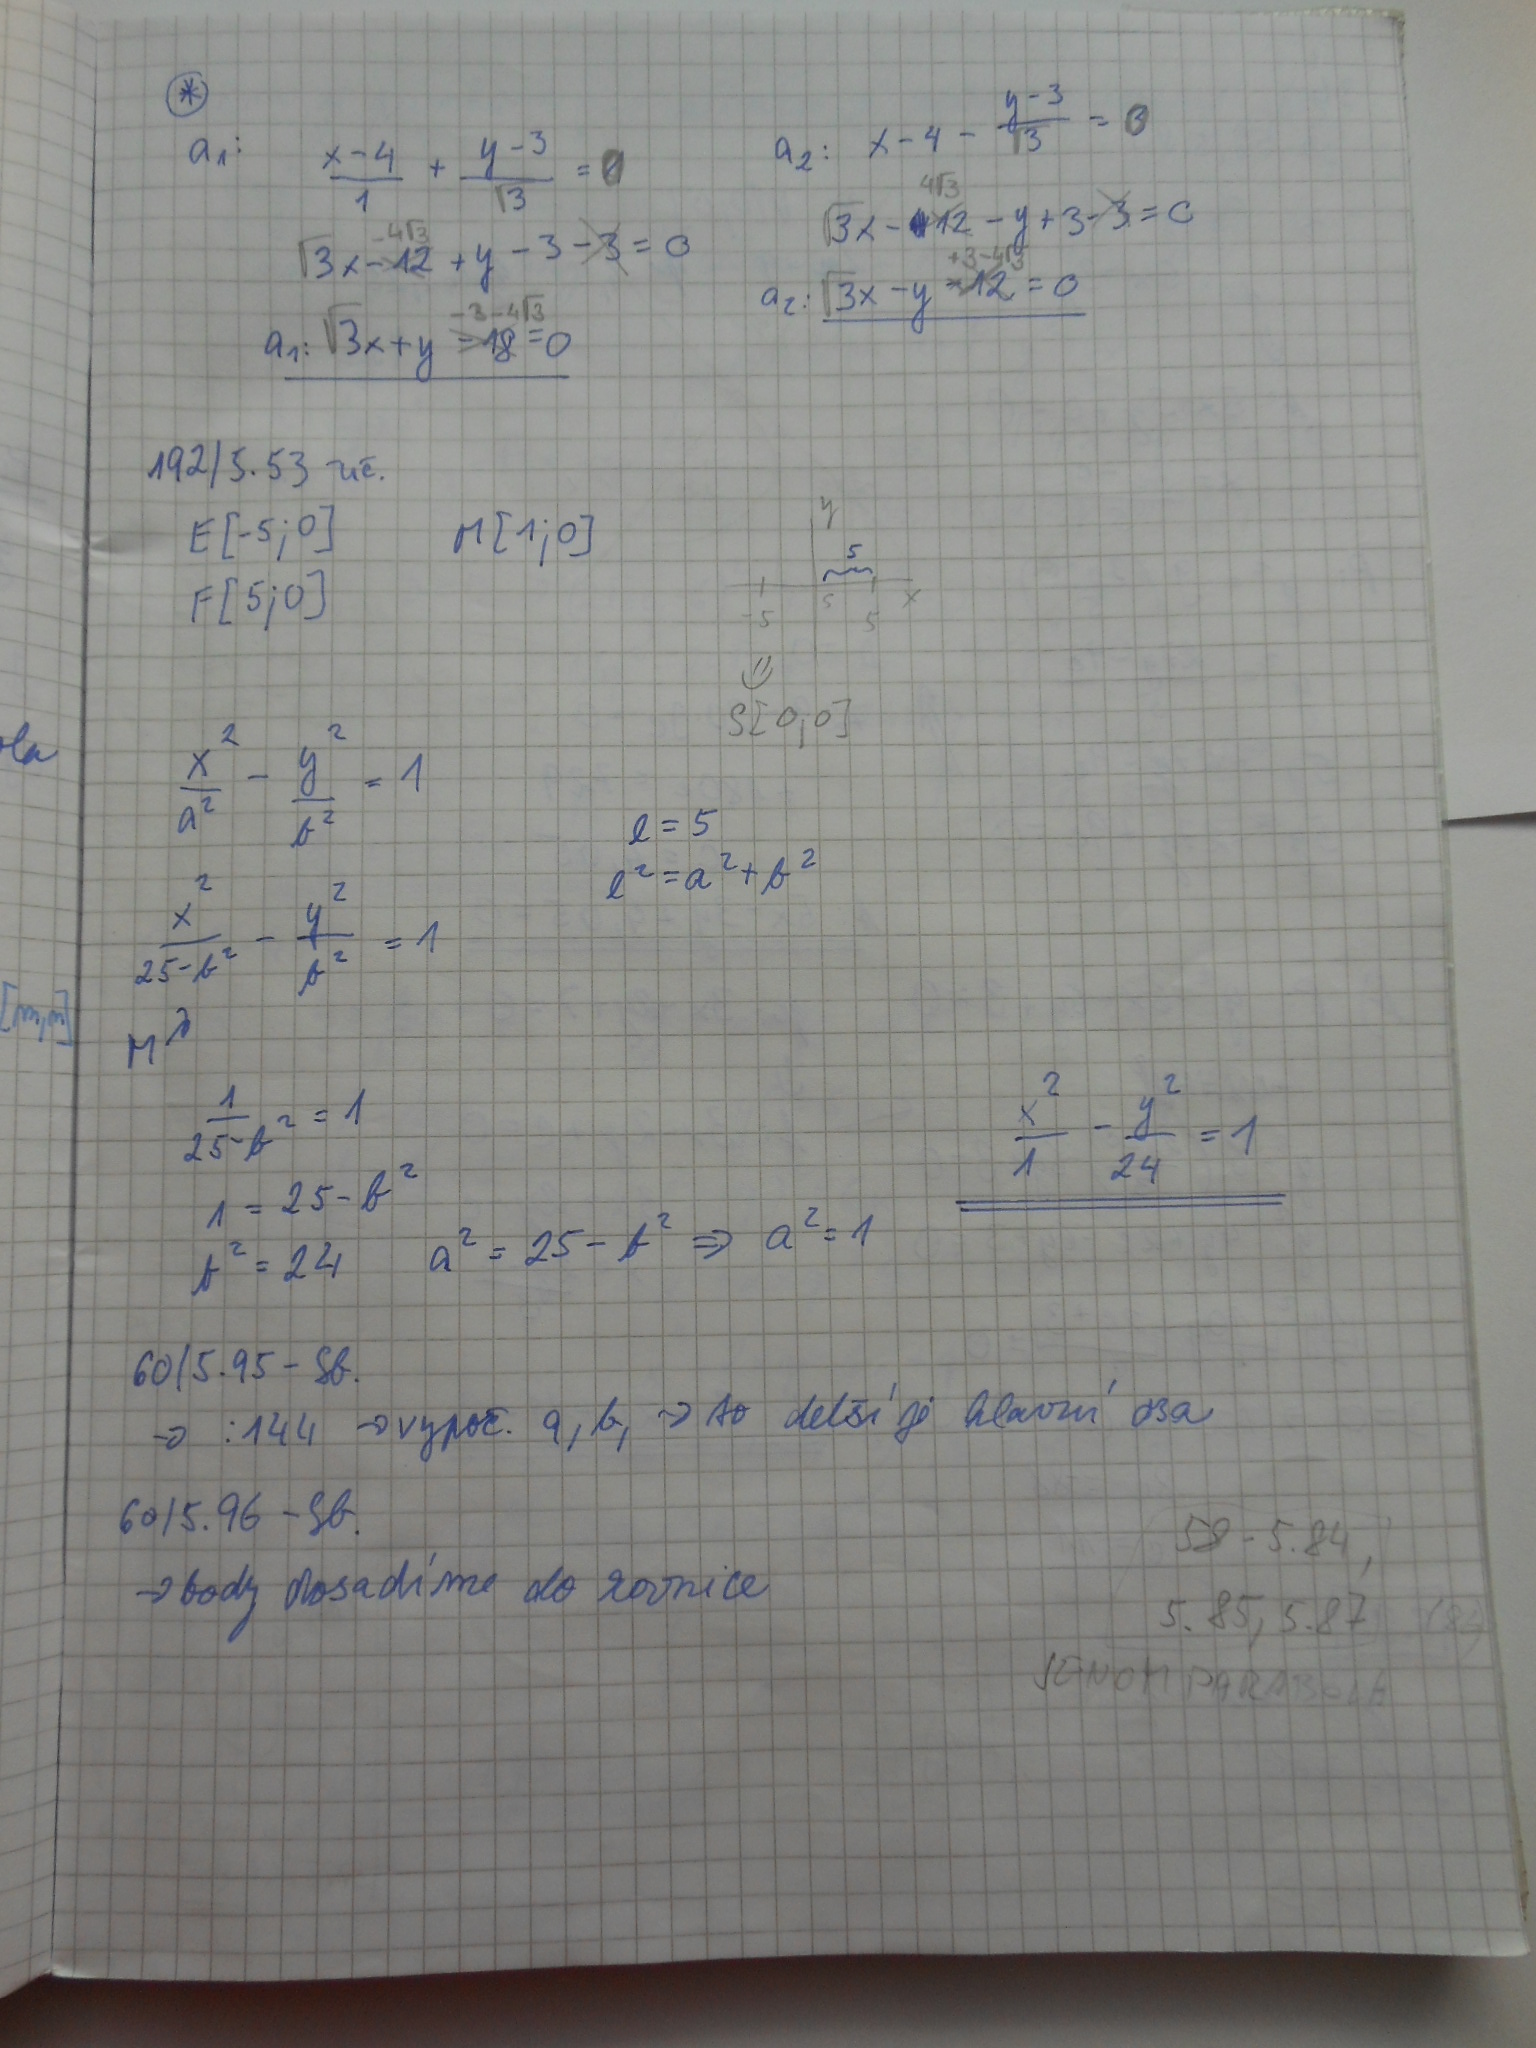 *
a₁: (x-4)/1 + (y-3)/√3 = 0
√3x -12 -4√3 + y - 3 - 3 = 0
a₁: √3x + y -18 -3-4√3 = 0
a₂: x - 4 - (y-3)/√3 = 0
√3x - 12 4√3 - y + 3 - 3 = 0
a₂: √3x - y -12 +3-4√3 = 0
192/5.53 uč.
E[-5;0] M[1;0]
F[5;0]
y
5
-5 5 5 x
S[0;0]
x²/a² - y²/b² = 1
e = 5
e² = a² + b²
x²/(25-b²) - y²/b² = 1
[m,n]
M
1/(25-b²) = 1
1 = 25 - b²
b² = 24 a² = 25 - b² ⇒ a² = 1
x²/1 - y²/24 = 1
60/5.95 - Sb.
→ :144 → vypoč. a, b, → to delší je hlavní osa
60/5.96 - Sb.
→ body dosadíme do rovnice
58 - 5.84,
5.85, 5.87
JENOM PARABOLA